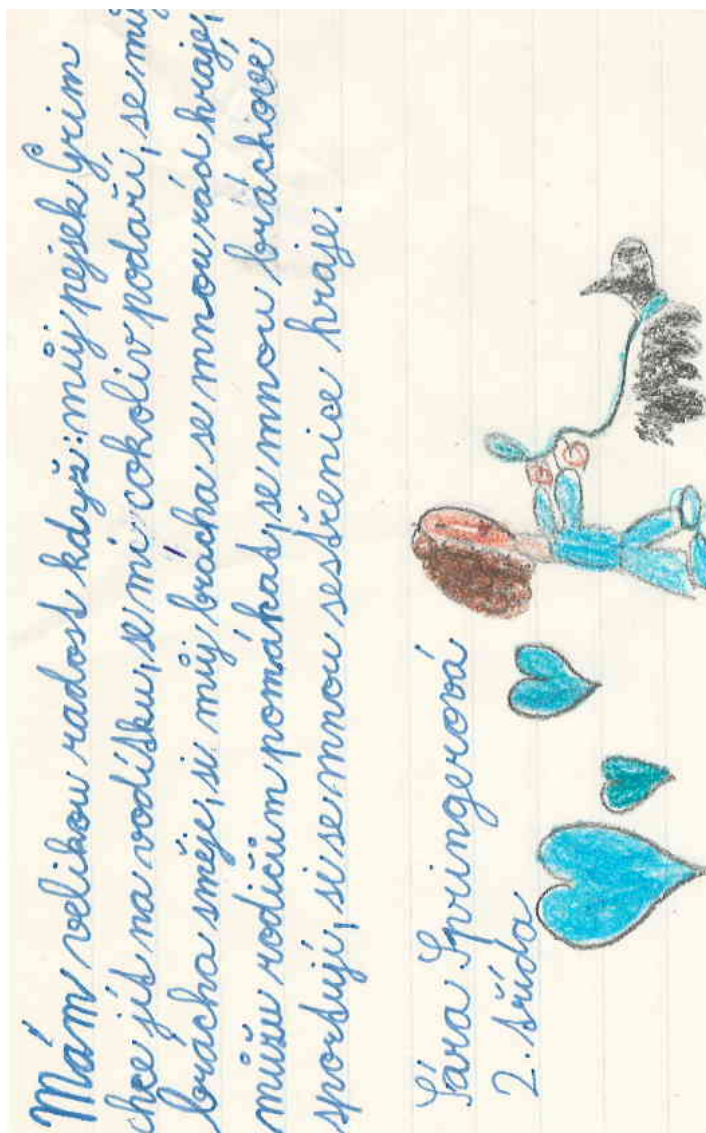 Mám velikou radost když: můj pejsek Grim
chce jít na vodítku, se mi cokoliv podaří, se můj
brácha směje, si můj brácha se mnou rád hraje,
můžu rodičům pomáhat, se mnou bráchové
sportují, si se mnou sestřenice hraje.
Sára Springerová
2. třída